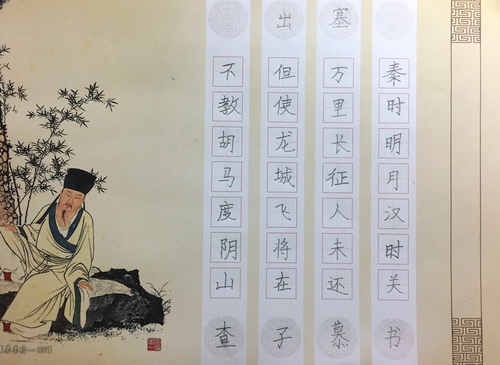 出塞
秦时明月汉时关
万里长征人未还
但使龙城飞将在
不教胡马度阴山
查子慕书